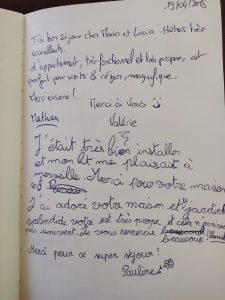 29/04/2018
Très bon séjour chez Mario et Lucia. Hôtes très
accueillants.
L'appartement, très fonctionnel et très propre, est
parfait pour visiter la région, magnifique.
Merci encore!
Merci à vous
Mathieu
Valérie
J'était très bien installer
et mon lit me plaisait à
merveille. Merci pour votre maison
J'ai adoré votre maison et jardin
splendide votre est très propre et cela n'arrive
pas souvent. Je vous remercie
beaucoup!
Merci pour ce super séjour!
Pauline